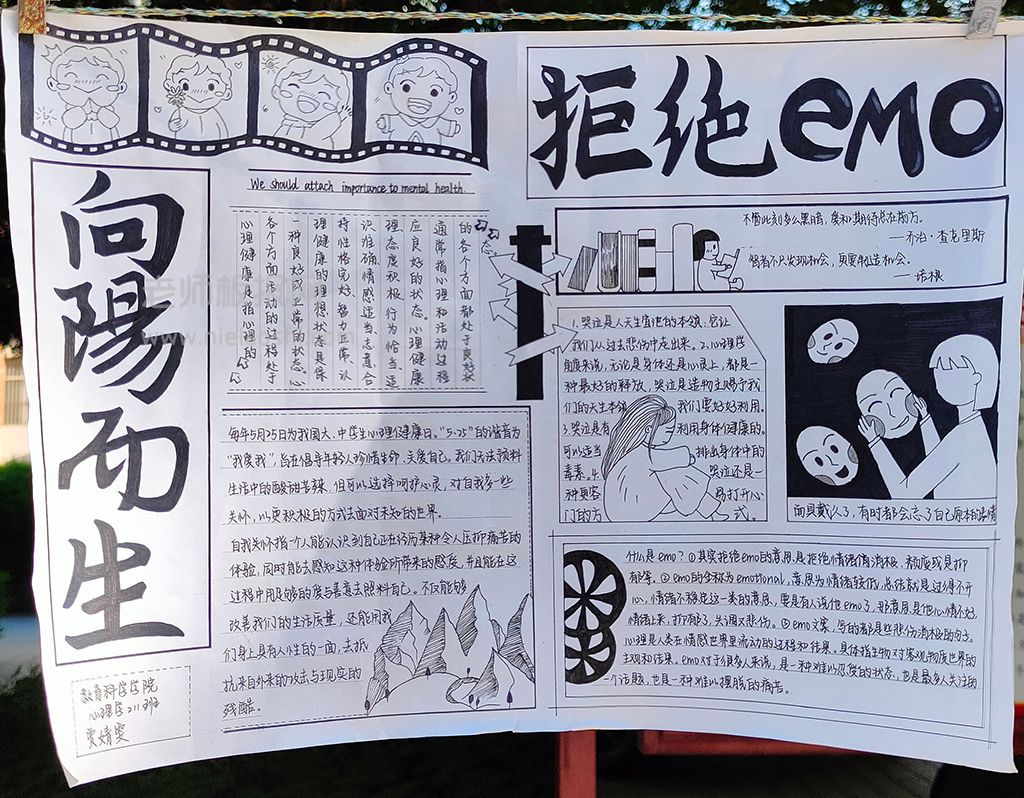 向陽而生
拒绝emo
We should attach importance to mental health.
心理健康是指心理的
各个方面活动的过程处于
一种良好或正常的状态。心
理健康的理想状态是保
持性格完好、智力正常、认
识准确、情感适当、态度合
理、态度积极、行为恰当、适
应良好的状态。心理健康
通常指心理和活动过程
的各个方面都处于良好状
态。
每年5月25日为我国大、中学生心理健康日。"5·25"的谐音为
"我爱我",旨在倡导年轻人珍惜生命、关爱自己。我们无法预料
生活中的酸甜苦辣,但可以选择呵护心灵,对自我多一些
关怀,以更积极的方式去面对未知的世界。
自我关怀指一个人能认识到自己正在经历某种令人压抑痛苦的
体验,同时能去感知这种体验所带来的感受,并且能在这
过程中用足够的爱与善意去照料自己。不仅能够
改善我们的生活质量,还能用我
们身上具有人性的一面,去抵
抗来自外来的攻击与现实的
残酷。
教育科学学院
心理学211班
贾婧雯
不管此刻多么黑暗,爱和期待总在前方。
—乔治·查克里斯
智者不只发现机会,更要制造机会。
—培根
1.哭泣是人天生自带的本领,它让
我们从过去悲伤中走出来。2.从心理学
角度来说,无论是身体还是心灵上,都是一
种最好的释放,哭泣是造物主赐予我
们的天生本领 我们要好好利用。
3.哭泣是有 利用身体健康的。
可以适当 排出身体中的
毒素。4. 哭泣还是一
种更容 易打开心
门的方 式。
面具戴久了,有时都会忘了自己原本的表情
什么是emo?①其实拒绝emo的意思是拒绝情绪情消极、颓废或是抑
郁等。②emo的全称为emotional,意思为情绪较低,总结就是过得不开
心,情绪不稳定这一类的意思,要是有人说他emo了,那意思是他心情不好,
情绪上来,打抑郁了,失调又悲伤。③emo文案,写的都是些悲伤消极的句子。
心理是人类在情感世界里流动的过程和结果。具体指生物对客观物质世界的
主观和结果。emo对于很多人来说,是一种难以忍受的状态,也是最多人关注的
一个话题,也是一种难以摆脱的痛苦。